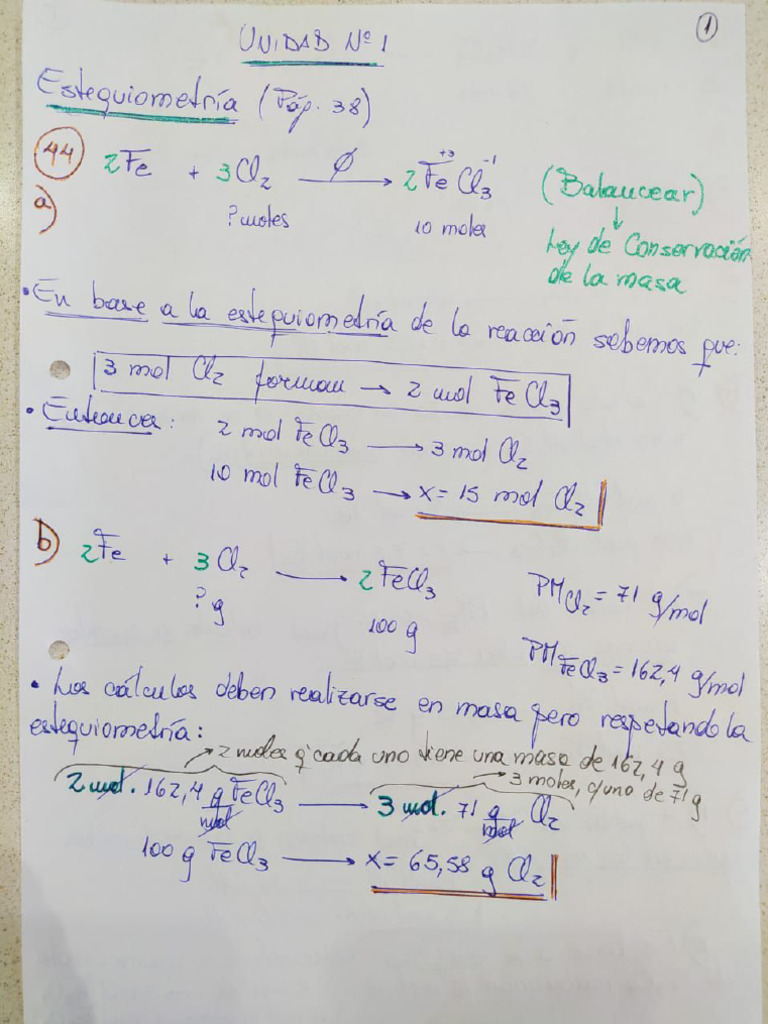 1
UNIDAD Nº 1
Estequiometría (Pág. 38)
44 2Fe + 3Cl₂ —Ø→ 2Fe⁺³Cl₃⁻¹ (Balancear)
a) ? moles 10 moles ↓
Ley de Conservación
de la masa
• En base a la estequiometría de la reacción sabemos que:
3 mol Cl₂ forman → 2 mol FeCl₃
• Entonces: 2 mol FeCl₃ → 3 mol Cl₂
10 mol FeCl₃ → x = 15 mol Cl₂
b) 2Fe + 3Cl₂ → 2FeCl₃
? g 100 g
PM Cl₂ = 71 g/mol
PM FeCl₃ = 162,4 g/mol
• Los cálculos deben realizarse en masa pero respetando la
estequiometría:
→ 2 moles q' cada uno tiene una masa de 162,4 g
→ 3 moles, c/uno de 71 g
2 mol. 162,4 g/mol FeCl₃ → 3 mol. 71 g/mol Cl₂
100 g FeCl₃ → x = 65,58 g Cl₂